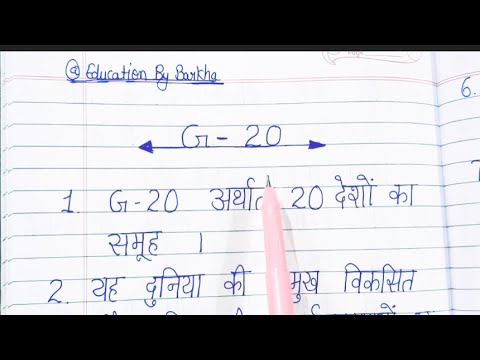 @ Education By Barkha
G - 20
1. G-20 अर्थात 20 देशों का
समूह ।
2. यह दुनिया की मुख विकसित
6.